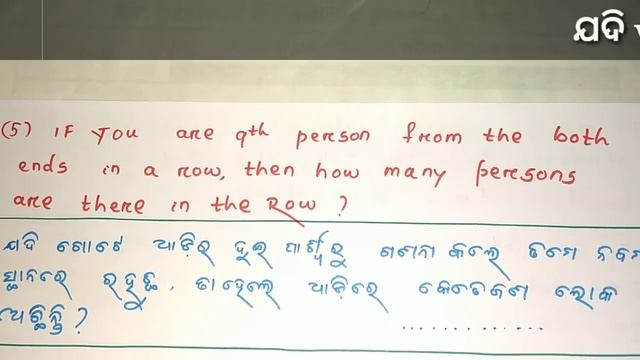 ଯଦି
(5) IF You are 9th person from the both
ends in a row, then how many persons
are there in the Row ?
ଯଦି ଗୋଟେ ଧାଡ଼ିର ଦୁଇ ପାର୍ଶ୍ୱରୁ ଗଣନା କଲେ ତମେ ନବମ
ସ୍ଥାନରେ ରହୁଛ, ତାହେଲେ ଧାଡ଼ିରେ କେତେଜଣ ଲୋକ
ଅଛନ୍ତି ? ..............